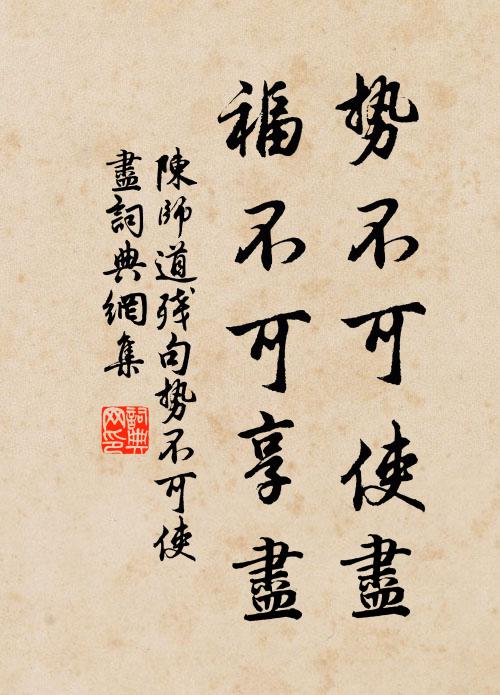 势不可使盡
福不可享盡
陳師道殘句势不可使
盡詞典網集
詞典网印